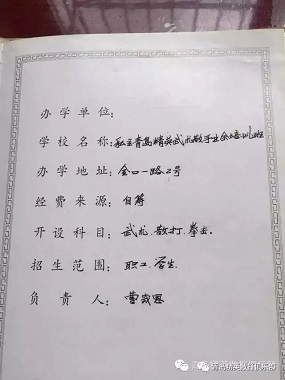 办学单位：
学校名称：私立青岛精英武术散手业余培训班
办学地址：金口一路2号
经费来源：自筹
开设科目：武术.散打.拳击.
招生范围：职工.学生.
负责人：曹茂恩